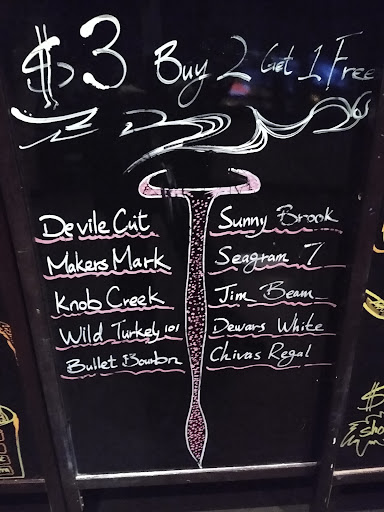 $3 Buy 2 Get 1 Free
Devile Cut
Makers Mark
Knob Creek
Wild Turkey 101
Bullet Bourbon
Sunny Brook
Seagram 7
Jim Beam
Dewars White
Chivas Regal
$
sho